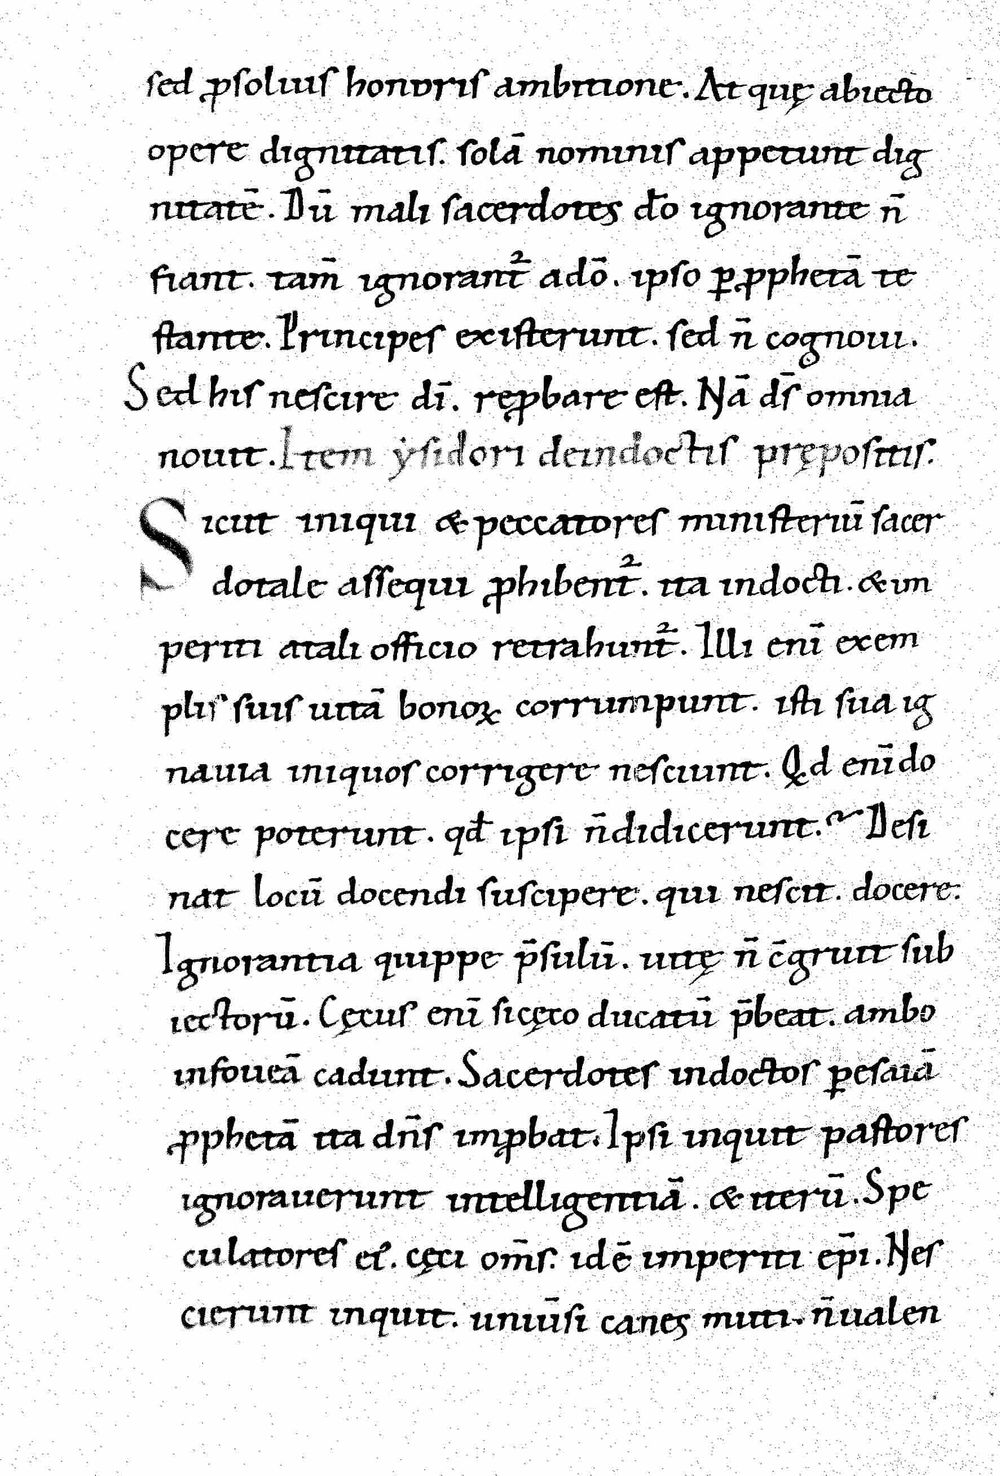 sed ꝓsoluis honoris ambitione. At quę abiecto
opere dignitatis. solā nominis appetunt dig
nitatē. Dū mali sacerdotes dō ignorante n̄
fiant. tam̄ ignorant᷑ adō. ipso ꝑ ꝓphetā te
stante. Principes existerunt. sed n̄ cognoui.
Sed his nescire dī. reꝓbare est. Nā ds̄ omnia
nouit. Item ẏsidori deindoctis prępositis.
Sicut iniqui & peccatores ministeriū sacer
dotale assequi ꝓhibent᷑. ita indocti. & im
periti atali officio retrahunt᷑. Illi enī exem
plis suis uitā bonoꝝ corrumpunt. isti sua ig
nauia iniquos corrigere nesciunt. Qd enī do
cere poterunt. qđ ipsi n̄didicerunt. Desi
nat locū docendi suscipere. qui nescit. docere.
Ignorantia quippe p̄sulū. uitę n̄ c̄gruit sub
iectorū. Cęcus enī sicęco ducatū p̄beat. ambo
infoueā cadunt. Sacerdotes indoctos ꝑesaiā
ꝓphetā ita dn̄s imꝓbat. Ipsi inquit pastores
ignorauerunt intelligentiā. & iterū. Spe
culatores ei᷒. cęci om̄s. idē imperiti ep̄i. Nes
cierunt inquit. uniūsi canes muti. n̄ualen